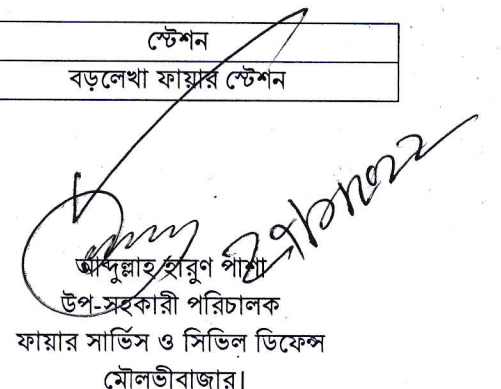 স্টেশন
বড়লেখা ফায়ার স্টেশন
আব্দুল্লাহ হারুণ পাশা
উপ-সহকারী পরিচালক
ফায়ার সার্ভিস ও সিভিল ডিফেন্স
মৌলভীবাজার।